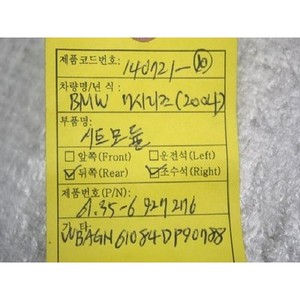 제품코드번호: 140721-10
차량명/년식:
BMW 7시리즈(2004)
부품명:
시트모듈
앞쪽(Front) 운전석(Left)
뒤쪽(Rear) 조수석(Right)
제품번호(P/N):
61.35-6 927 276
기타:
WBAGN61084DP90788